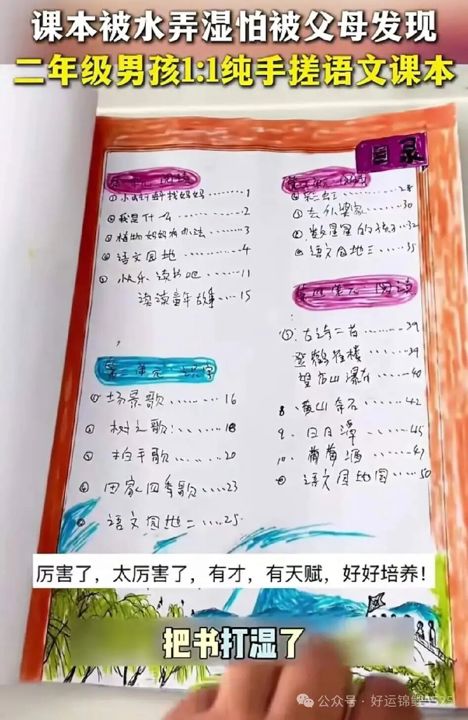 课本被水弄湿怕被父母发现
二年级男孩1:1纯手搓语文课本
目录
①小蝌蚪找妈妈……1
②我是什么……2
③植物妈妈有办法……3
语文园地……4
快乐读书吧……11
读读童年故事……15
场景歌……16
树之歌……18
拍手歌……20
田家四季歌……23
语文园地二……25
28
30
32
语文园地三……35
古诗二首……39
登鹳雀楼……39
望庐山瀑布……40
8 黄山奇石……42
9. 日月潭……45
10. 葡萄沟……47
语文园地四……50
厉害了，太厉害了，有才，有天赋，好好培养！
把书打湿了
公众号·好运锦鲤